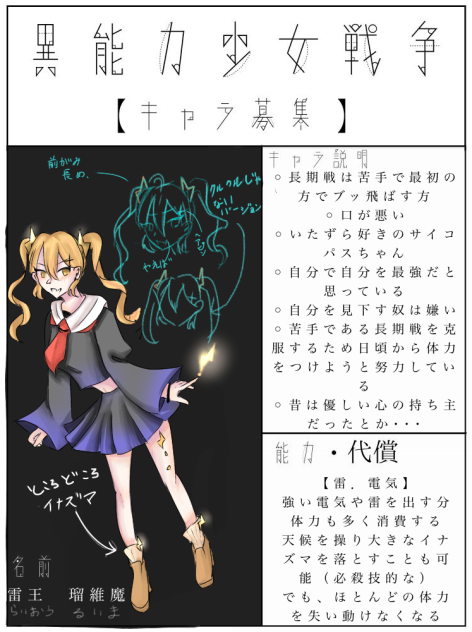 異能力少女戦争
【キャラ募集】
前がみ
長め、
クルクルじゃ
ない
バージョン
やえば
ところどころ
イナズマ
名前
雷王 瑠維魔
らいおう るいま
キャラ説明
○長期戦は苦手で最初の
方でブッ飛ばす方
○口が悪い
○いたずら好きのサイコ
パスちゃん
○自分で自分を最強だと
思っている
○自分を見下す奴は嫌い
○苦手である長期戦を克
服するため日頃から体力
をつけようと努力してい
る
○昔は優しい心の持ち主
だったとか・・・
能力・代償
【雷．電気】
強い電気や雷を出す分
体力も多く消費する
天候を操り大きなイナ
ズマを落とすことも可
能（必殺技的な）
でも、ほとんどの体力
を失い動けなくなる